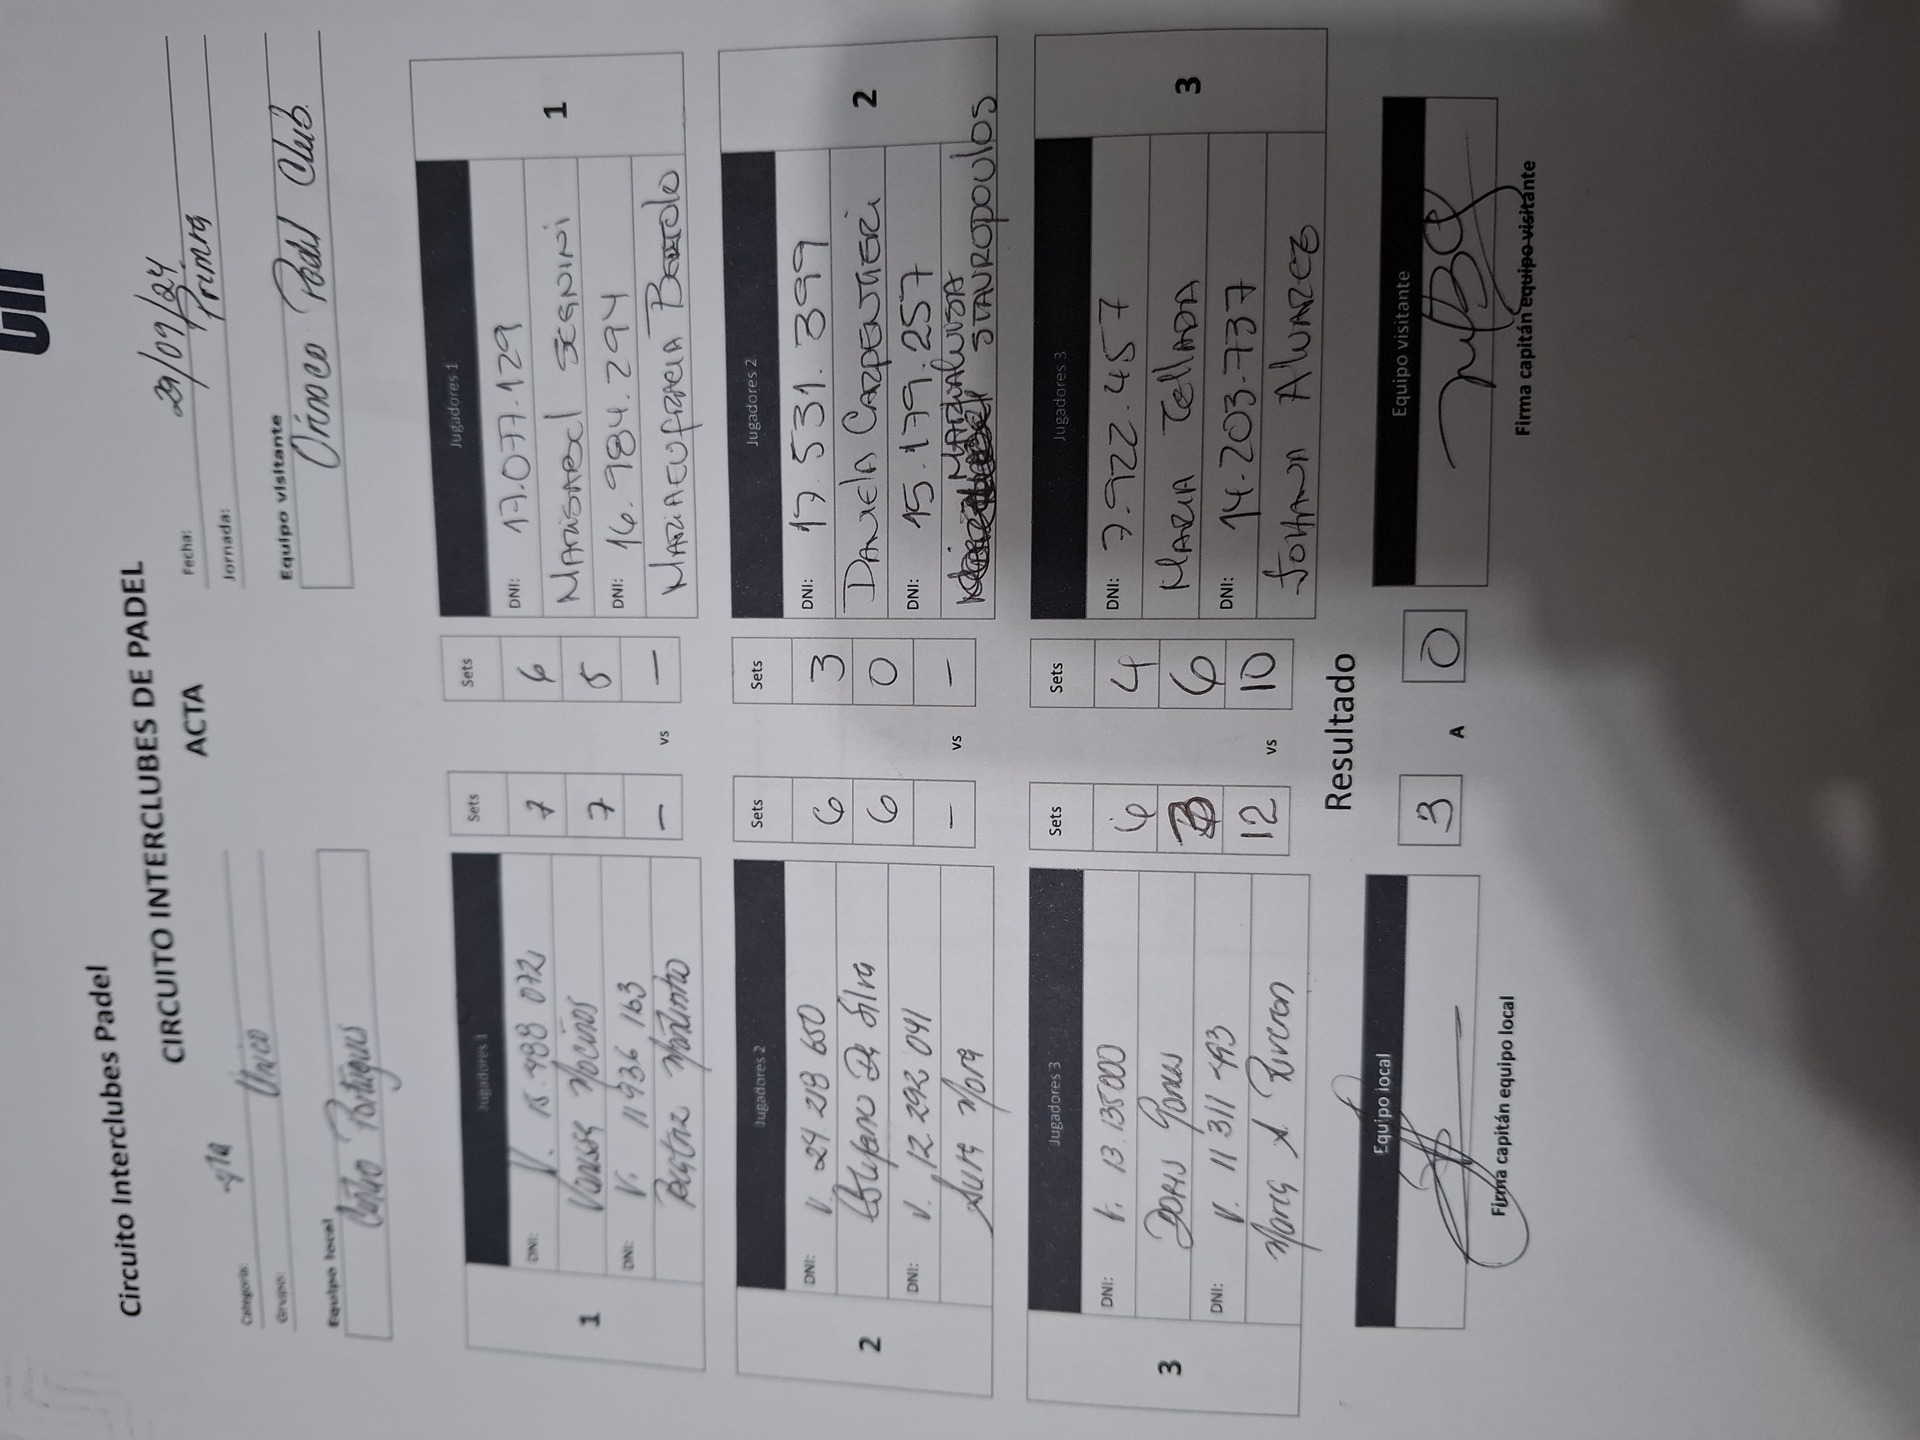 Circuito Interclubes Padel
CIRCUITO INTERCLUBES DE PADEL
ACTA
Categoría: 4ta
Fecha: 29/09/24
Grupo: Unico
Jornada: Primera
Equipo local
Equipo visitante
Centro Portugues
Orinoco Padel Club.
1
Jugadores 1
Sets
Sets
Jugadores 1
1
DNI:
7
6
DNI: 17.077.129
Vanessa
7
5
Marisabel Segnini
DNI: V. 11 936 163
—
vs
—
DNI: 16.984.294
Beatriz
Mariaeugracia
2
Jugadores 2
Sets
Sets
Jugadores 2
2
DNI: V. 24 218 650
6
3
DNI: 17.531.399
De Silva
6
0
Daniela Carpentieri
DNI: V. 12 292 041
—
vs
—
DNI: 15.179.257
Mora
Stauropoulos
3
Jugadores 3
Sets
Sets
Jugadores 3
3
DNI: V. 13 135000
6
4
DNI: 7.922.457
Doris
6
Maria Tellada
DNI: V. 11 311 493
12
vs
10
DNI: 14.203.737
Maria A.
Johana Alvarez
Resultado
Equipo local
3
A
0
Equipo visitante
Firma capitán equipo local
Firma capitán equipo visitante